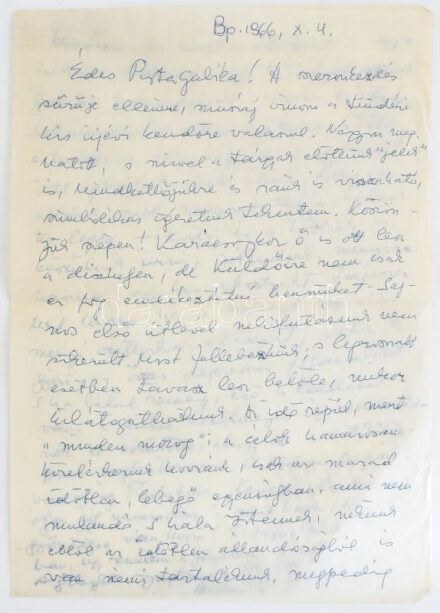 Bp. 1966, X. 4.
Édes PistaGabika! A szezonkezdés
sűrűje ellenére, muszáj írnom a tündéri
kis újévi kendőre válaszul. Nagyon meg-
hatott, s mivel a tárgyak előttünk "jelek"
is, mindkettőjükre és ránk is
szimbólikus égetnek tekintem. Köszön-
jük szépen! Karácsonykor ő is ott lesz
a díszhelyen, de Küldőire nem csak
ez fog emlékeztetni bennünket. Saj-
nos első útlevél nekifutásunk nem
sikerült. Most fellebezünk, s legrosszabb
esetben tavasz lesz belőle, mikor
kilátogathatunk. Az idő repül, mert
"minden mozog"; a célok hamarosan
közelérkeznek hozzánk, csak az marad
időtlen, lebegő egységban, ami nem
mulandó. S hála Istennek, nekünk
ebből az időtlen állandóságból is
van némi tartalékunk, mégpedig
darabanth